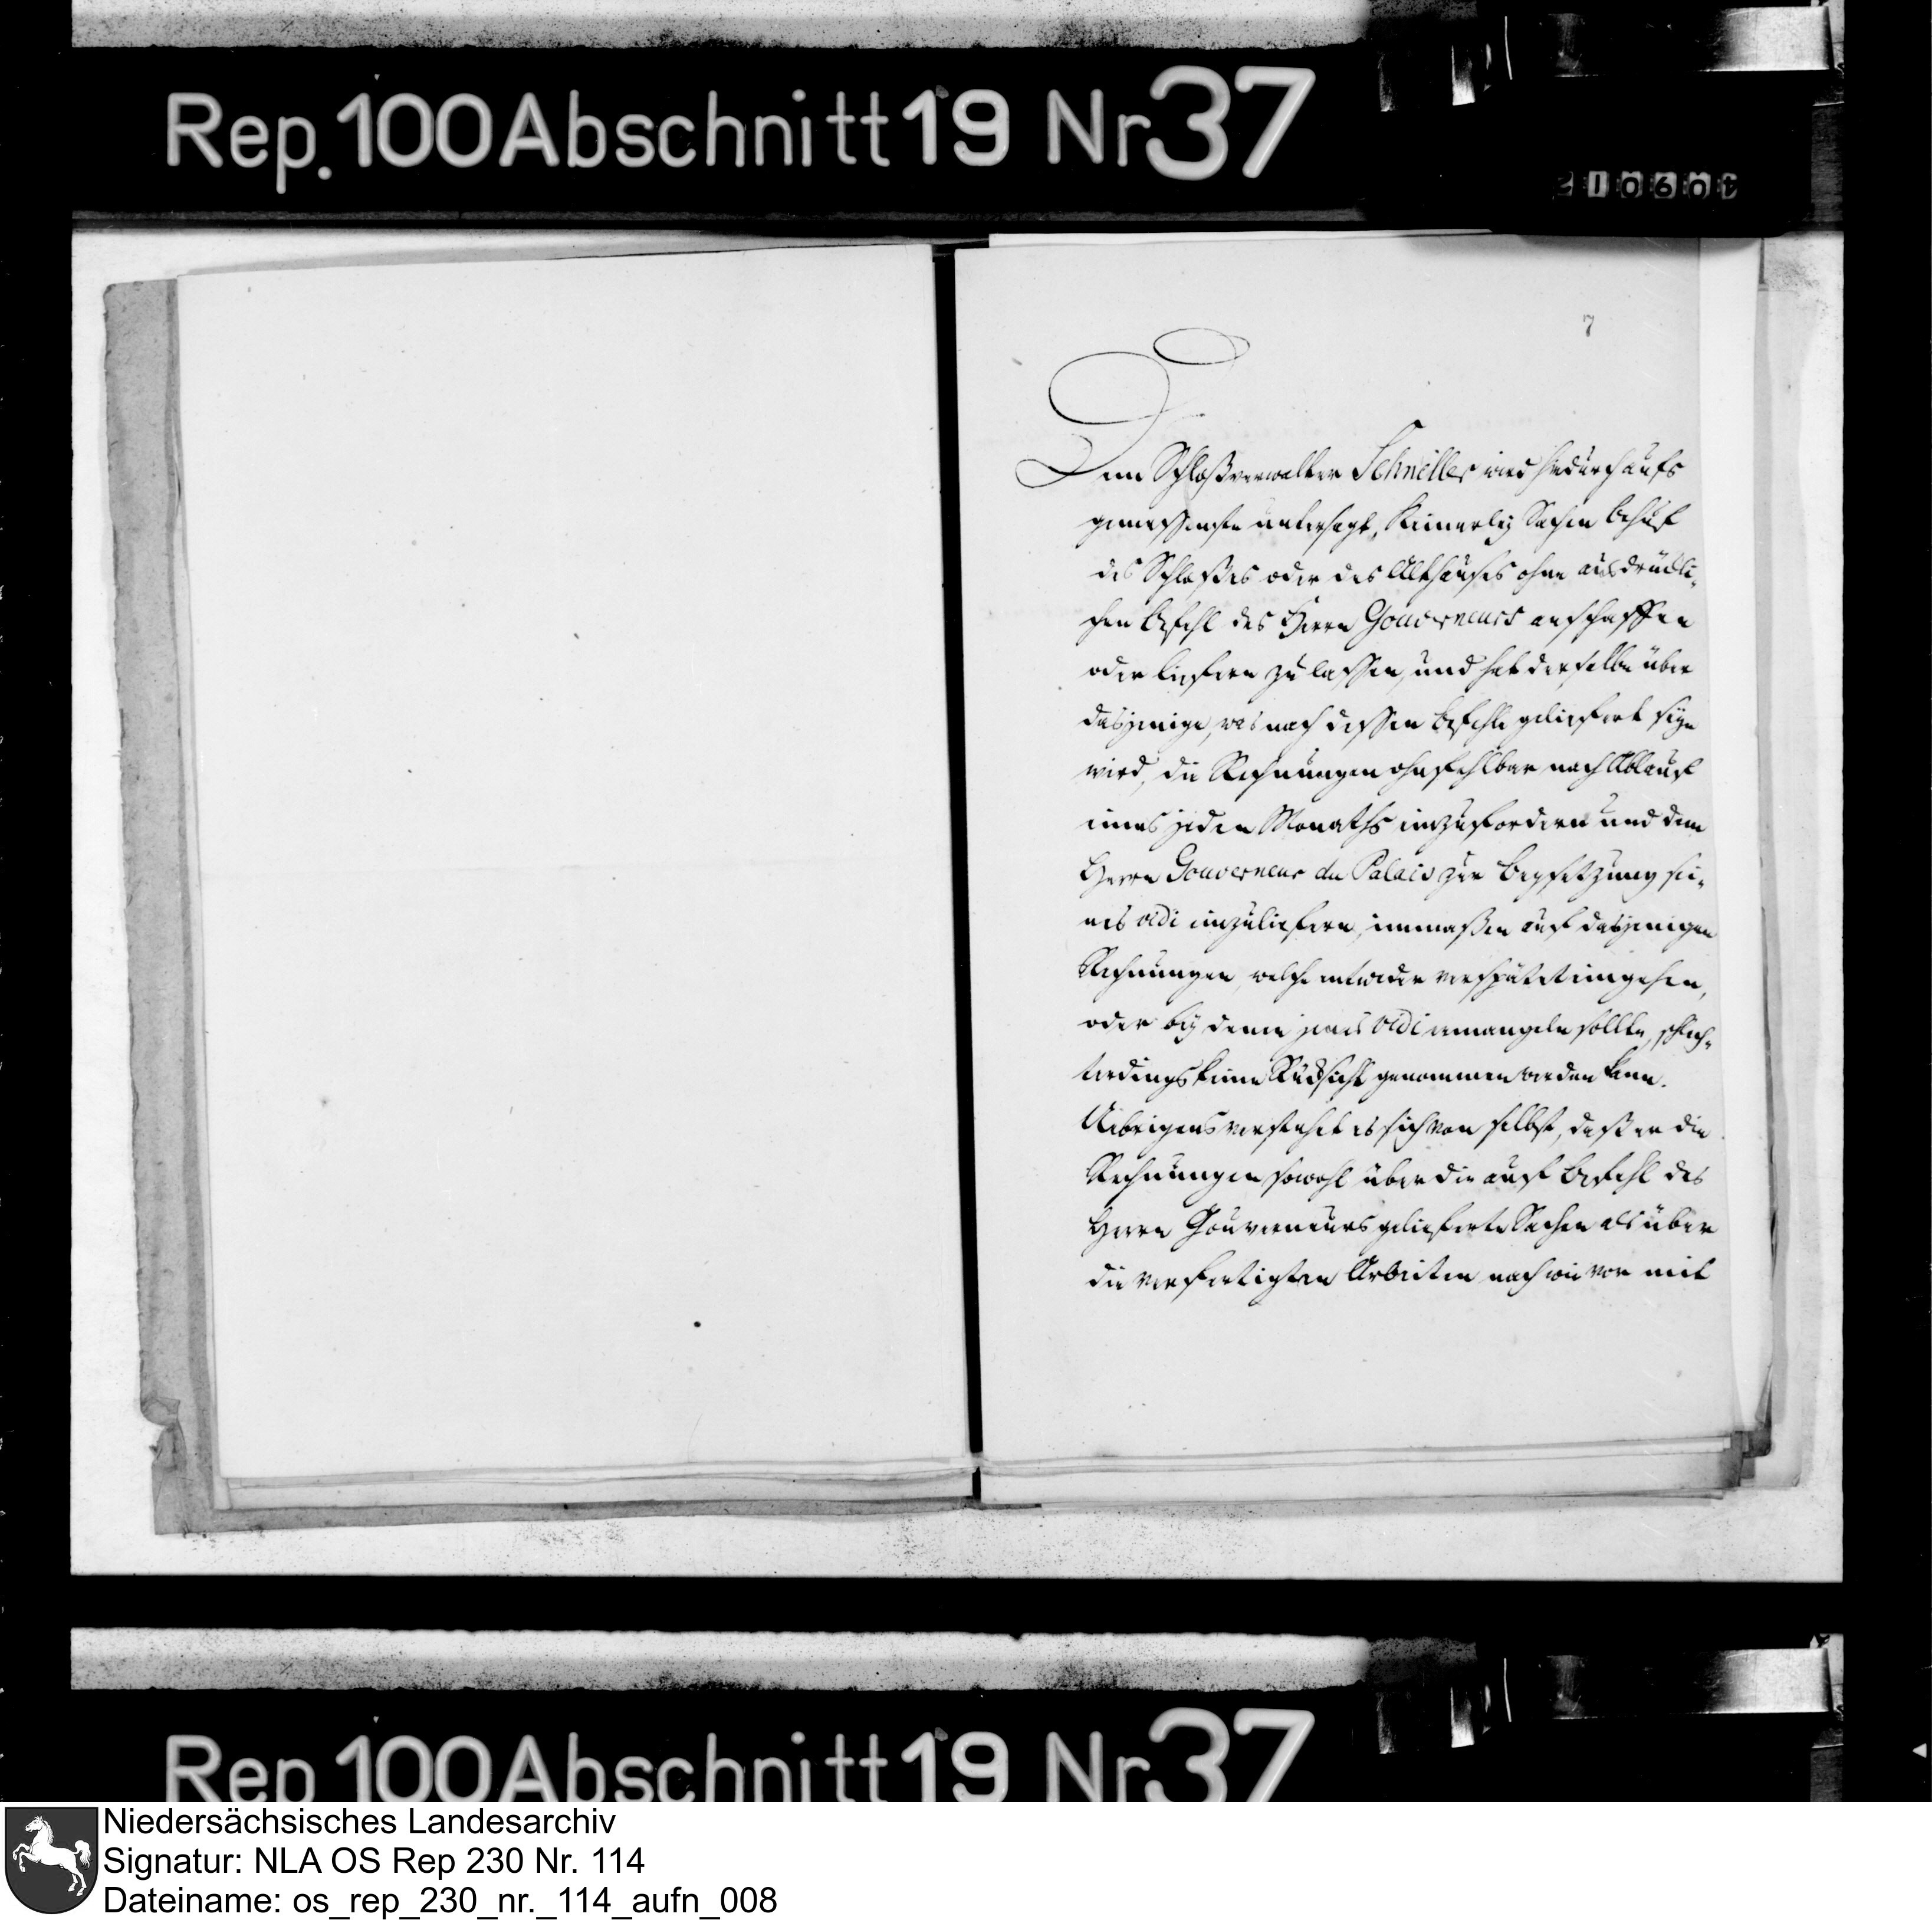 Rep. 100 Abschnitt 19 Nr 37
210604
7
Dem Schloßverwalter Schmilles wird hiedurch aufs
gemessenste untersagt, keinerley Sachen behuf
des Schloßes oder des Althauses ohne ausdrückli-
chen Befehl des Herrn Gouverneurs anschaffen
oder liefern zu lassen, und hat derselbe über
dasjenige, was nach dessen Befehle geliefert seyn
wird, die Rechnungen ohnfehlbar nach Ablauf
eines jeden Monaths einzufordern und dem
Herrn Gouverneur du Palais zur Beysetzung sei-
nes vidi einzuliefern, immaßen auf dasjenigen
Rechnungen, welche entweder verspätet eingehen,
oder bey denen jenes vidi ermangeln sollte, schlech-
terdings keine Rücksicht genommen werden kann.
Uibrigens verstehet es sich von selbst, daß er die
Rechnungen sowohl über die auf Befehl des
Herrn Gouverneurs gelieferte Sachen als über
die verfertigten Arbeiten nach wie vor mit
Rep 100 Abschnitt 19 Nr 37
Niedersächsisches Landesarchiv
Signatur: NLA OS Rep 230 Nr. 114
Dateiname: os_rep_230_nr._114_aufn_008